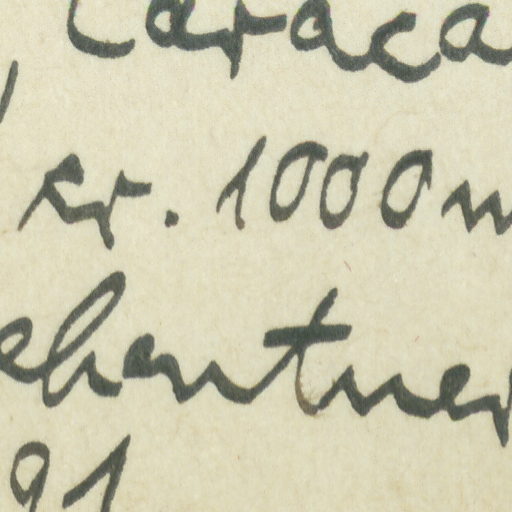 , Caraca
kr. 1000 m
ehentner
91